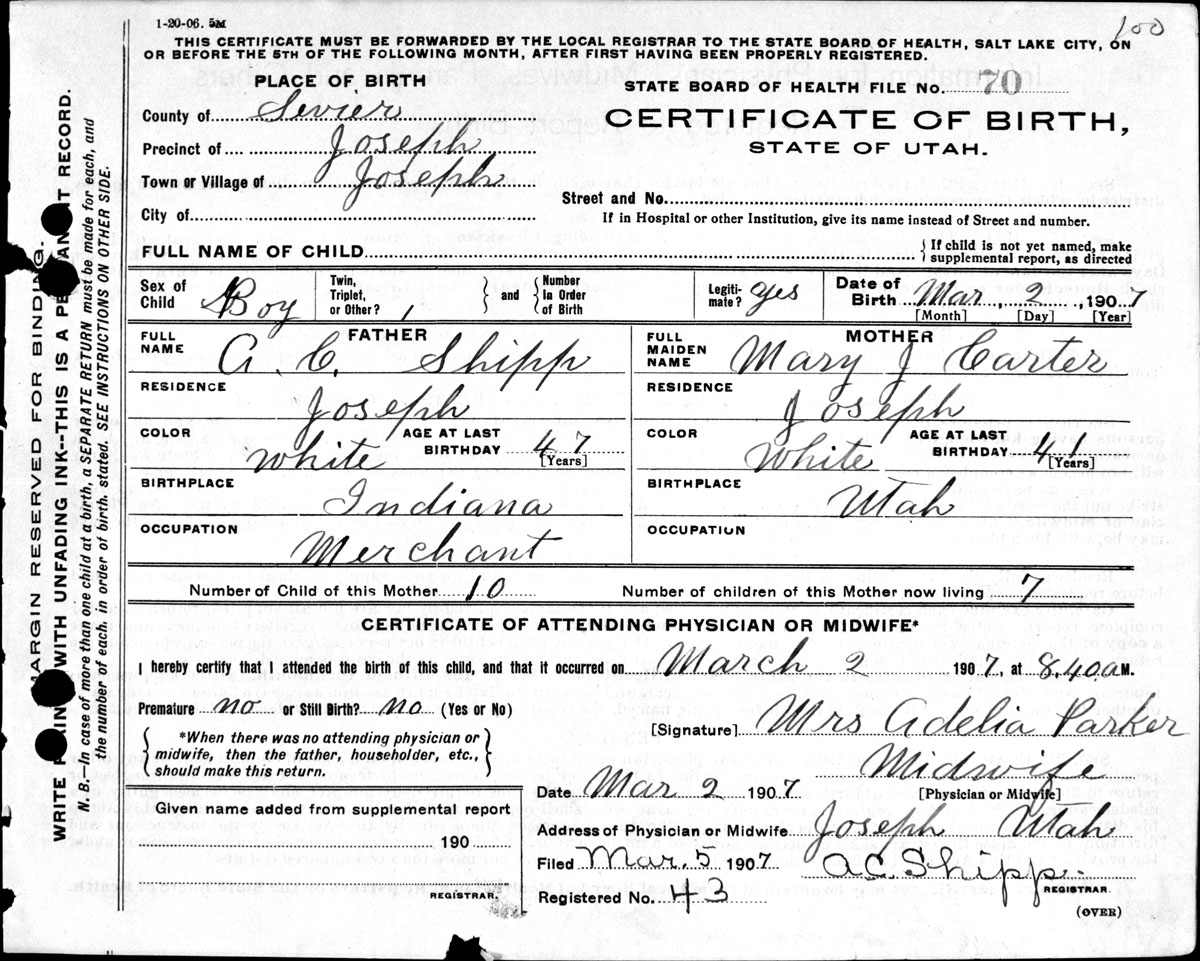 1-20-06. 5M
100
THIS CERTIFICATE MUST BE FORWARDED BY THE LOCAL REGISTRAR TO THE STATE BOARD OF HEALTH, SALT LAKE CITY, ON
OR BEFORE THE 5TH OF THE FOLLOWING MONTH, AFTER FIRST HAVING BEEN PROPERLY REGISTERED.
PLACE OF BIRTH
STATE BOARD OF HEALTH FILE No. 70
County of Sevier
CERTIFICATE OF BIRTH,
STATE OF UTAH.
Precinct of Joseph
Town or Village of Joseph
Street and No.
City of
If in Hospital or other Institution, give its name instead of Street and number.
FULL NAME OF CHILD
{If child is not yet named, make
supplemental report, as directed
Sex of Child Boy
Twin, Triplet, or Other? 1
} and {
Number in Order of Birth
Legiti-mate? yes
Date of Birth Mar, 2, 1907
[Month] [Day] [Year]
FATHER
FULL NAME A. C. Shipp
MOTHER
FULL MAIDEN NAME Mary J Carter
RESIDENCE Joseph
RESIDENCE Joseph
COLOR white AGE AT LAST BIRTHDAY 47 [Years]
COLOR White AGE AT LAST BIRTHDAY 41 [Years]
BIRTHPLACE Indiana
BIRTHPLACE Utah
OCCUPATION Merchant
OCCUPATION
Number of Child of this Mother 10 Number of children of this Mother now living 7
CERTIFICATE OF ATTENDING PHYSICIAN OR MIDWIFE*
I hereby certify that I attended the birth of this child, and that it occurred on March 2 1907, at 8.40 a M.
Premature no or Still Birth? no (Yes or No)
[Signature] Mrs Adelia Parker
{*When there was no attending physician or
midwife, then the father, householder, etc.,
should make this return.}
Midwife
[Physician or Midwife]
Date Mar 2 1907
Given name added from supplemental report
190
REGISTRAR.
Address of Physician or Midwife Joseph Utah
Filed Mar. 5 1907 A.C. Shipp.
REGISTRAR.
Registered No. 43
(OVER)
MARGIN RESERVED FOR BINDING.
WRITE WITH UNFADING INK--THIS IS A RECORD.
N. B.—In case of more than one child at a birth, a SEPARATE RETURN must be made for each, and
the number of each, in order of birth, stated. SEE INSTRUCTIONS ON OTHER SIDE.